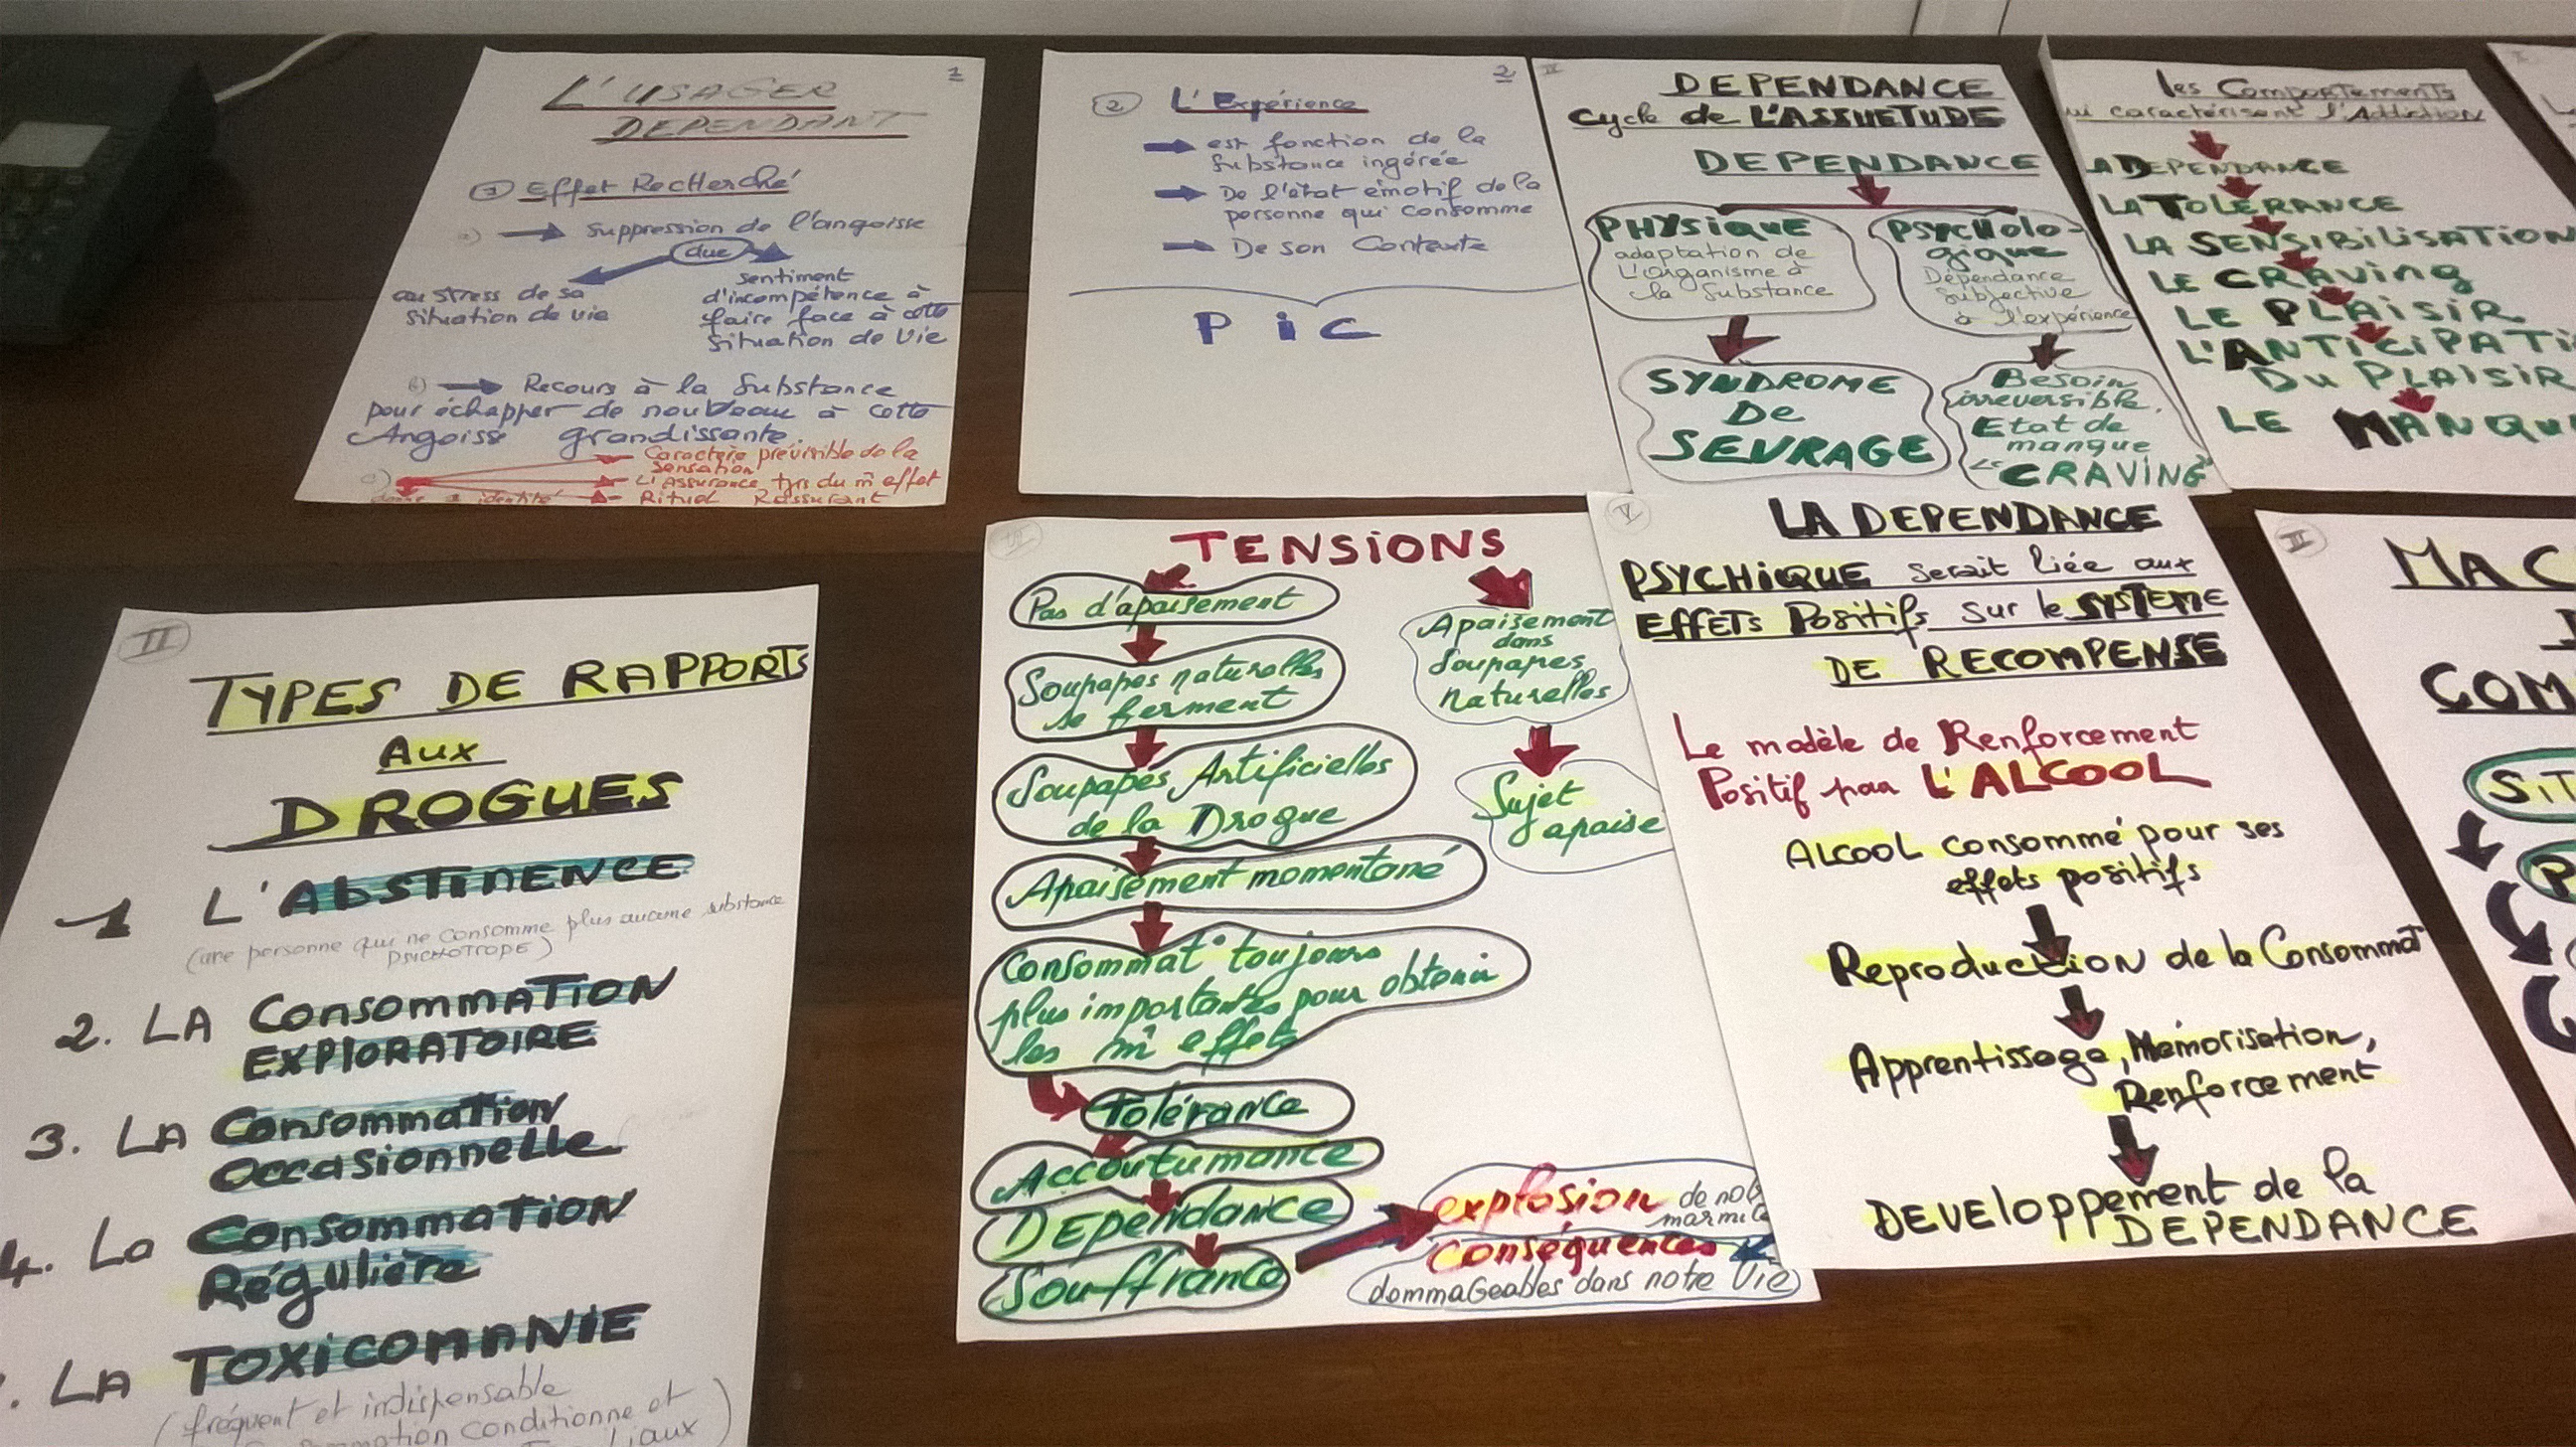 L'USAGER
DEPENDANT
1
① Effet Recherché
a) → Suppression de l'angoisse
due
au stress de sa
situation de vie
sentiment
d'incompétence à
faire face à cette
situation de Vie
b) → Recours à la Substance
pour échapper de nouveau à cette
Angoisse grandissante.
c)
Caractère prévisible de la
Sensation
L'Assurance tjrs du m̂ effet
Rituel Rassurant
identité
2
② L'Expérience
→ est fonction de la
Substance ingérée
→ De l'état émotif de la
personne qui consomme
→ De son Contexte
P i C
DEPENDANCE
Cycle de L'ASSUETUDE
DEPENDANCE
PHYSIQUE
adaptation de
L'organisme à
la Substance
SYNDROME
De
SEVRAGE
PSYCHOLO-
gique
Dépendance
Subjective
à l'expérience
Besoin
irreversible.
Etat de
manque
"CRAVING"
les Comportements
ui caractérisent l'Addiction
A DEPENDANCE
LA TOLERANCE
LA SENSIBILISATION
LE CRAVING
LE PLAISIR
L'ANTICIPATI
DU PLAISIR
LE MANQU
II
TYPES DE RAPPORTS
AUX
DROGUES
1 L'ABSTINENCE
(une personne qui ne consomme plus aucune substance
PSYCHOTROPE)
2. LA Consommation
EXPLORATOIRE
3. LA Consommation
Occasionnelle
4. La Consommation
Régulière
. LA TOXICOMANIE
(fréquent et indispensable
mation conditionne et
iaux)
TENSIONS
Pas d'apaisement
Soupapes naturelles
se ferment
Soupapes Artificielles
de la Drogue
Apaisement momentané
Consommat° toujours
plus importantes pour obtenir
les m̂ effets
Tolérance
Accoutumance
DEpendance
Souffrance
Apaisement
dans
Soupapes
naturelles
Sujet
apaisé
explosion de not
marmi
Conséquences
dommageables dans notre Vie
V
LA DEPENDANCE
PSYCHIQUE serait liée aux
EFFETS Positifs sur le SYSTEME
DE RECOMPENSE
Le modèle de Renforcement
Positif par L'ALCOOL
ALCOOL consommé pour ses
effets positifs
Reproduction de la Consommat°
Apprentissage, Mémorisation,
Renforcement
DEVELOPPement de la
DEPENDANCE
II
MA C
COM
SIT
P